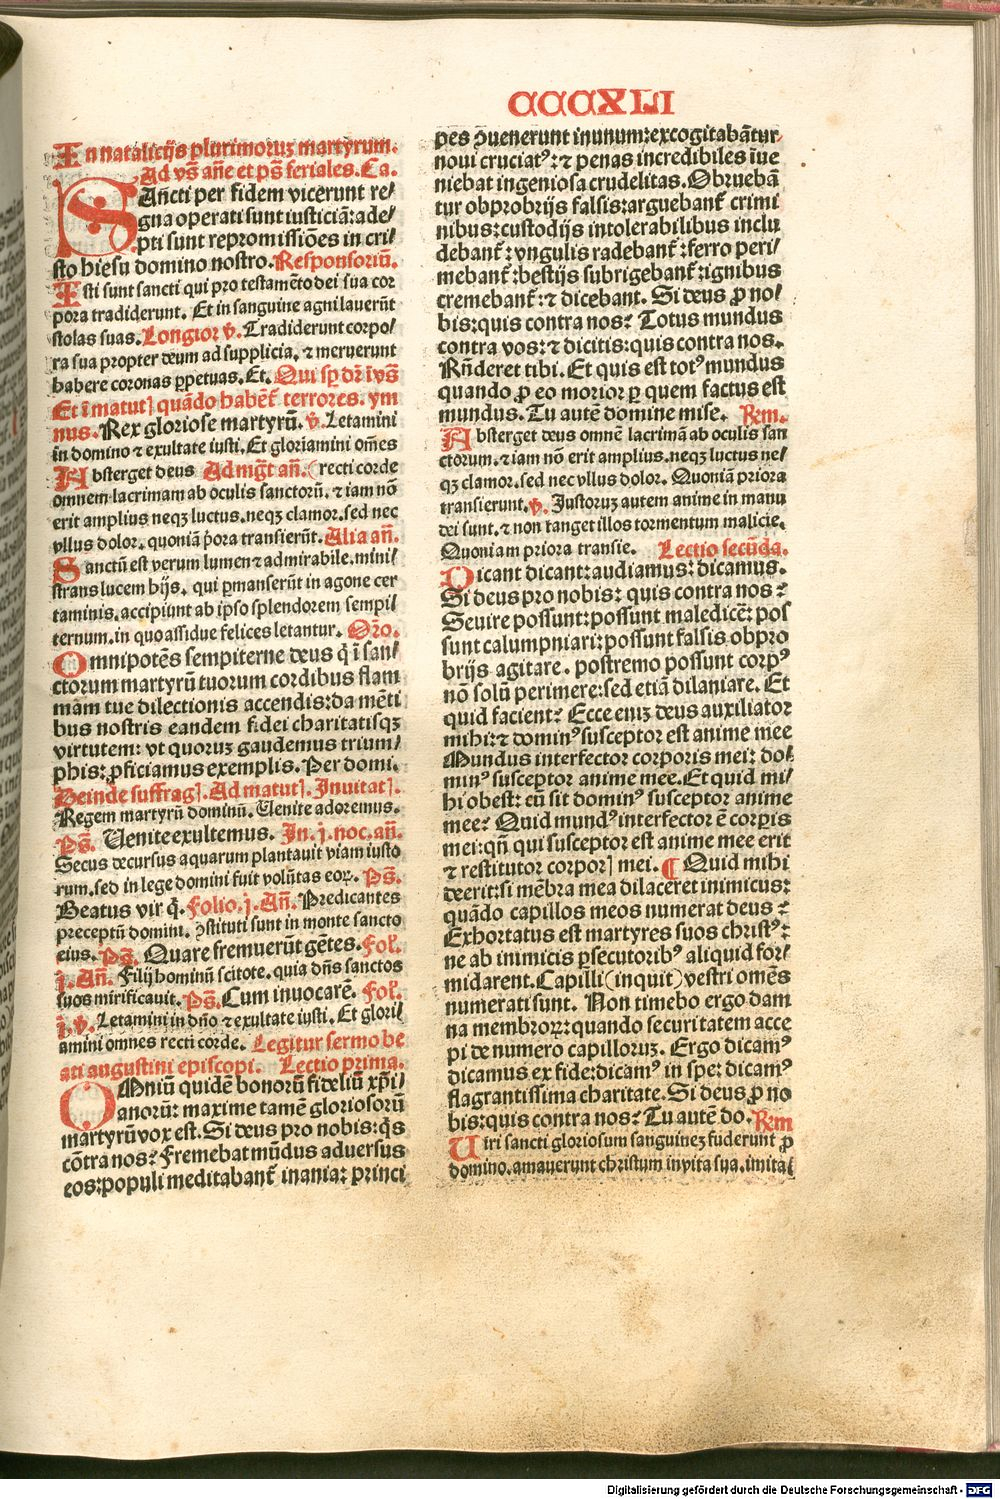 CCCXLI
In natalicijs plurimoruz martyrum.
Ad vs̄ an̄e et ps̄ feriales. Ca.
SAncti per fidem vicerunt re/
gna operati sunt iusticiā: ade/
pti sunt repromissiōes in cri/
sto hiesu domino nostro. Responsoriū.
Isti sunt sancti qui pro testamēto dei sua cor
pora tradiderunt. Et in sanguine agni lauerūt
stolas suas. Longior v̄. Tradiderunt corpo/
ra sua propter deum ad supplicia. ⁊ meruerunt
habere coronas ꝑpetuas. Et. Qui sp̄ dr̄ ī vs̄
Et ī matutꝭ quādo habent̄ terrores. ym
nus. Rex gloriose martyrū. v̄. Letamini
in domino ⁊ exultate iusti. Et gloriamini om̄es
Absterget deus Ad mgt̄ an̄. (recti corde
omnem lacrimam ab oculis sanctorū. ⁊ iam nō
erit amplius neqꝫ luctus. neqꝫ clamor. sed nec
vllus dolor. quoniā p̄ora transierūt. Alia an̄.
Sanctū est verum lumen ⁊ admirabile. mini/
strans lucem hijs. qui ꝑmanserūt in agone cer
taminis. accipiunt ab ipso splendorem sempi/
ternum. in quo assidue felices letantur. Oro.
Omnipotēs sempiterne deus q̄ ī san/
ctorum martyrū tuorum cordibus flam
mām tue dilectionis accendis: da mēti
bus nostris eandem fidei charitatisqꝫ
virtutem: vt quoruꝫ gaudemus trium/
phis: ꝓficiamus exemplis. Per domi.
Deinde suffragꝭ. Ad matutꝭ. Inuitatꝭ.
Regem martyrū dominū. Uenite adoremus.
Ps̄. Uenite exultemus. In. j. noc. an̄.
Secus decursus aquarum plantauit viam iusto
rum. sed in lege domini fuit volūtas eoꝝ. Ps̄.
Beatus vir q̄. Folio. j. An̄. Predicantes
preceptū domini. ꝯstituti sunt in monte sancto
eius. Ps̄. Quare fremuerūt gētes. Fol.
j. An̄. Filij hominū scitote. quia dn̄s sanctos
suos mirificauit. Ps̄. Cum inuocarē. Fol.
j. v̄. Letamini in dn̄o ⁊ exultate iusti. Et glori/
amini omnes recti corde. Legitur sermo be
ati augustini episcopi. Lectio prima.
OMniū quidē bonorū fideliū xp̄i/
anorū: maxime tamē gloriosorū
martyrū vox est. Si deus pro nobis: q̄s
cōtra nos? Fremebat mūdus aduersus
eos: populi meditabant̄ inania: princi
pes ꝯuenerunt in unum: excogitabātur
noui cruciatꝰ: ⁊ penas incredibiles īue
niebat ingeniosa crudelitas. Obruebā
tur obprobrijs falsis: arguebant̄ crimi
nibus: custodijs intolerabilibus inclu
debant̄: vngulis radebant̄: ferro peri/
mebant̄: bestijs subrigebant̄: ignibus
cremebant̄: ⁊ dicebant. Si deus ꝓ no/
bis: quis contra nos? Totus mundus
contra vos: ⁊ dicitis: quis contra nos.
Rn̄deret tibi. Et quis est totꝰ mundus
quando ꝓ eo morior ꝑ quem factus est
mundus. Tu autē domine mise. Rm̄.
Absterget deus omnē lacrimā ab oculis san
ctorum. ⁊ iam nō erit amplius. neqꝫ luctus ne/
qꝫ clamor. sed nec vllus dolor. Quoniā priora
transierunt. v̄. Justoruꝫ autem anime in manu
dei sunt. ⁊ non tanget illos tormentum malicie.
Quoniam priora transie. Lectio secūda.
Dicant dicant: audiamus: dicamus.
Si deus pro nobis: quis contra nos?
Seuire possunt: possunt maledicē: pos
sunt calumpniari: possunt falsis obpro
brijs agitare. postremo possunt corpꝰ
nō solū perimere: sed etiā dilaniare. Et
quid facient? Ecce eniꝫ deus auxiliator
mihi: ⁊ dominꝰ susceptor est anime mee
Mundus interfector corporis mei: do/
minꝰ susceptor anime mee. Et quid mi/
hi obest: cū sit dominꝰ susceptor anime
mee? Quid mundꝰ interfector ē corꝑis
mei: qn̄ qui susceptor est anime mee erit
⁊ restitutor corporꝭ mei. ¶ Quid mihi
deerit: si mēbra mea dilaceret inimicus:
quādo capillos meos numerat deus?
Exhortatus est martyres suos christꝰ:
ne ab inimicis ꝑsecutoribꝰ aliquid for/
midarent. Capilli (inquit) vestri omēs
numerati sunt. Non timebo ergo dam
na membroꝝ: quando securitatem acce
pi de numero capilloruꝫ. Ergo dicamꝰ
dicamus ex fide: dicamꝰ in spe: dicamꝰ
flagrantissima charitate. Si deus ꝓ no
bis: quis contra nos? Tu autē do. Rm̄
Uiri sancti gloriosum sanguineꝫ fuderunt ꝓ
domino. amauerunt christum in vita sua. imita/
Digitalisierung gefördert durch die Deutsche Forschungsgemeinschaft - DFG